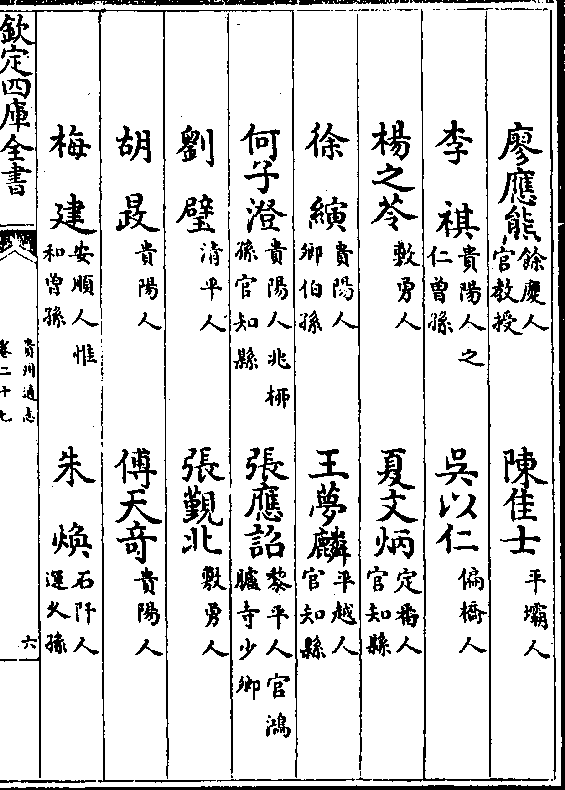 廖應熊餘慶人官教授　陳佳士平壩人
李祺貴陽人之仁曾孫　吳以仁偏橋人
楊之苓敷勇人　夏文炳定番人官知縣
徐縯貴陽人卿伯孫　王夢麟平越人官知縣
何子澄貴陽人兆柳孫官知縣　張應詔黎平人官鴻臚寺少卿
劉璧清平人　張覲北敷勇人
胡晸貴陽人　傅天竒貴陽人
梅建安順人惟和曾孫　朱煥石阡人運久孫
欽定四庫全書
貴州通志
卷二十七
六